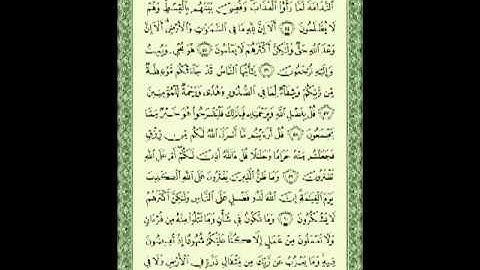 ٱلنَّدَامَةَ لَمَّا رَأَوُا۟ ٱلْعَذَابَ وَقُضِىَ بَيْنَهُم بِٱلْقِسْطِ وَهُمْ
لَا يُظْلَمُونَ ٥٤ أَلَآ إِنَّ لِلَّهِ مَا فِى ٱلسَّمَـٰوَٰتِ وَٱلْأَرْضِ أَلَآ إِنَّ
وَعْدَ ٱللَّهِ حَقٌّ وَلَـٰكِنَّ أَكْثَرَهُمْ لَا يَعْلَمُونَ ٥٥ هُوَ يُحْىِۦ وَيُمِيتُ
وَإِلَيْهِ تُرْجَعُونَ ٥٦ يَـٰٓأَيُّهَا ٱلنَّاسُ قَدْ جَآءَتْكُم مَّوْعِظَةٌ
مِّن رَّبِّكُمْ وَشِفَآءٌ لِّمَا فِى ٱلصُّدُورِ وَهُدًى وَرَحْمَةٌ لِّلْمُؤْمِنِينَ
٥٧ قُلْ بِفَضْلِ ٱللَّهِ وَبِرَحْمَتِهِۦ فَبِذَٰلِكَ فَلْيَفْرَحُوا۟ هُوَ خَيْرٌ مِّمَّا
يَجْمَعُونَ ٥٨ قُلْ أَرَءَيْتُم مَّآ أَنزَلَ ٱللَّهُ لَكُم مِّن رِّزْقٍ
فَجَعَلْتُم مِّنْهُ حَرَامًا وَحَلَـٰلًا قُلْ ءَآللَّهُ أَذِنَ لَكُمْ أَمْ عَلَى ٱللَّهِ
تَفْتَرُونَ ٥٩ وَمَا ظَنُّ ٱلَّذِينَ يَفْتَرُونَ عَلَى ٱللَّهِ ٱلْكَذِبَ
يَوْمَ ٱلْقِيَـٰمَةِ إِنَّ ٱللَّهَ لَذُو فَضْلٍ عَلَى ٱلنَّاسِ وَلَـٰكِنَّ أَكْثَرَهُمْ
لَا يَشْكُرُونَ ٦٠ وَمَا تَكُونُ فِى شَأْنٍ وَمَا تَتْلُوا۟ مِنْهُ مِن قُرْءَانٍ
وَلَا تَعْمَلُونَ مِنْ عَمَلٍ إِلَّا كُنَّا عَلَيْكُمْ شُهُودًا إِذْ تُفِيضُونَ
فِيهِ وَمَا يَعْزُبُ عَن رَّبِّكَ مِن مِّثْقَالِ ذَرَّةٍ فِى ٱلْأَرْضِ وَلَا فِى